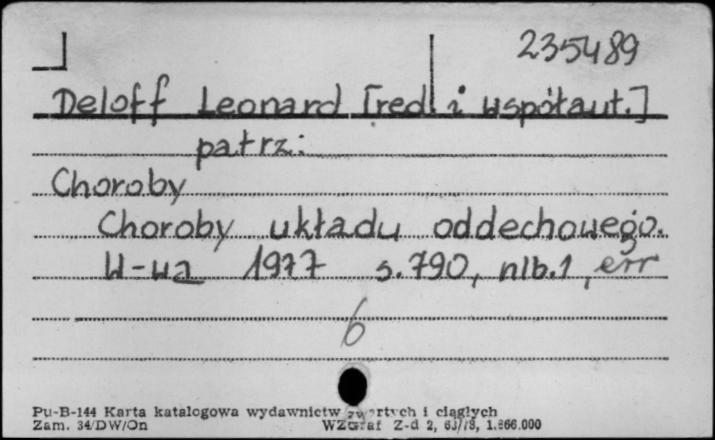 235489
Deloff Leonard [red. i współaut.]
patrz:
Choroby
Choroby układu oddechowego.
W-wa 1977 s.790, nlb.1, err
6
Pu-B-144 Karta katalogowa wydawnictw zwartych i ciągłych
Zam. 34/DW/On WZGraf Z-d 2, 63/78, 1.866.000